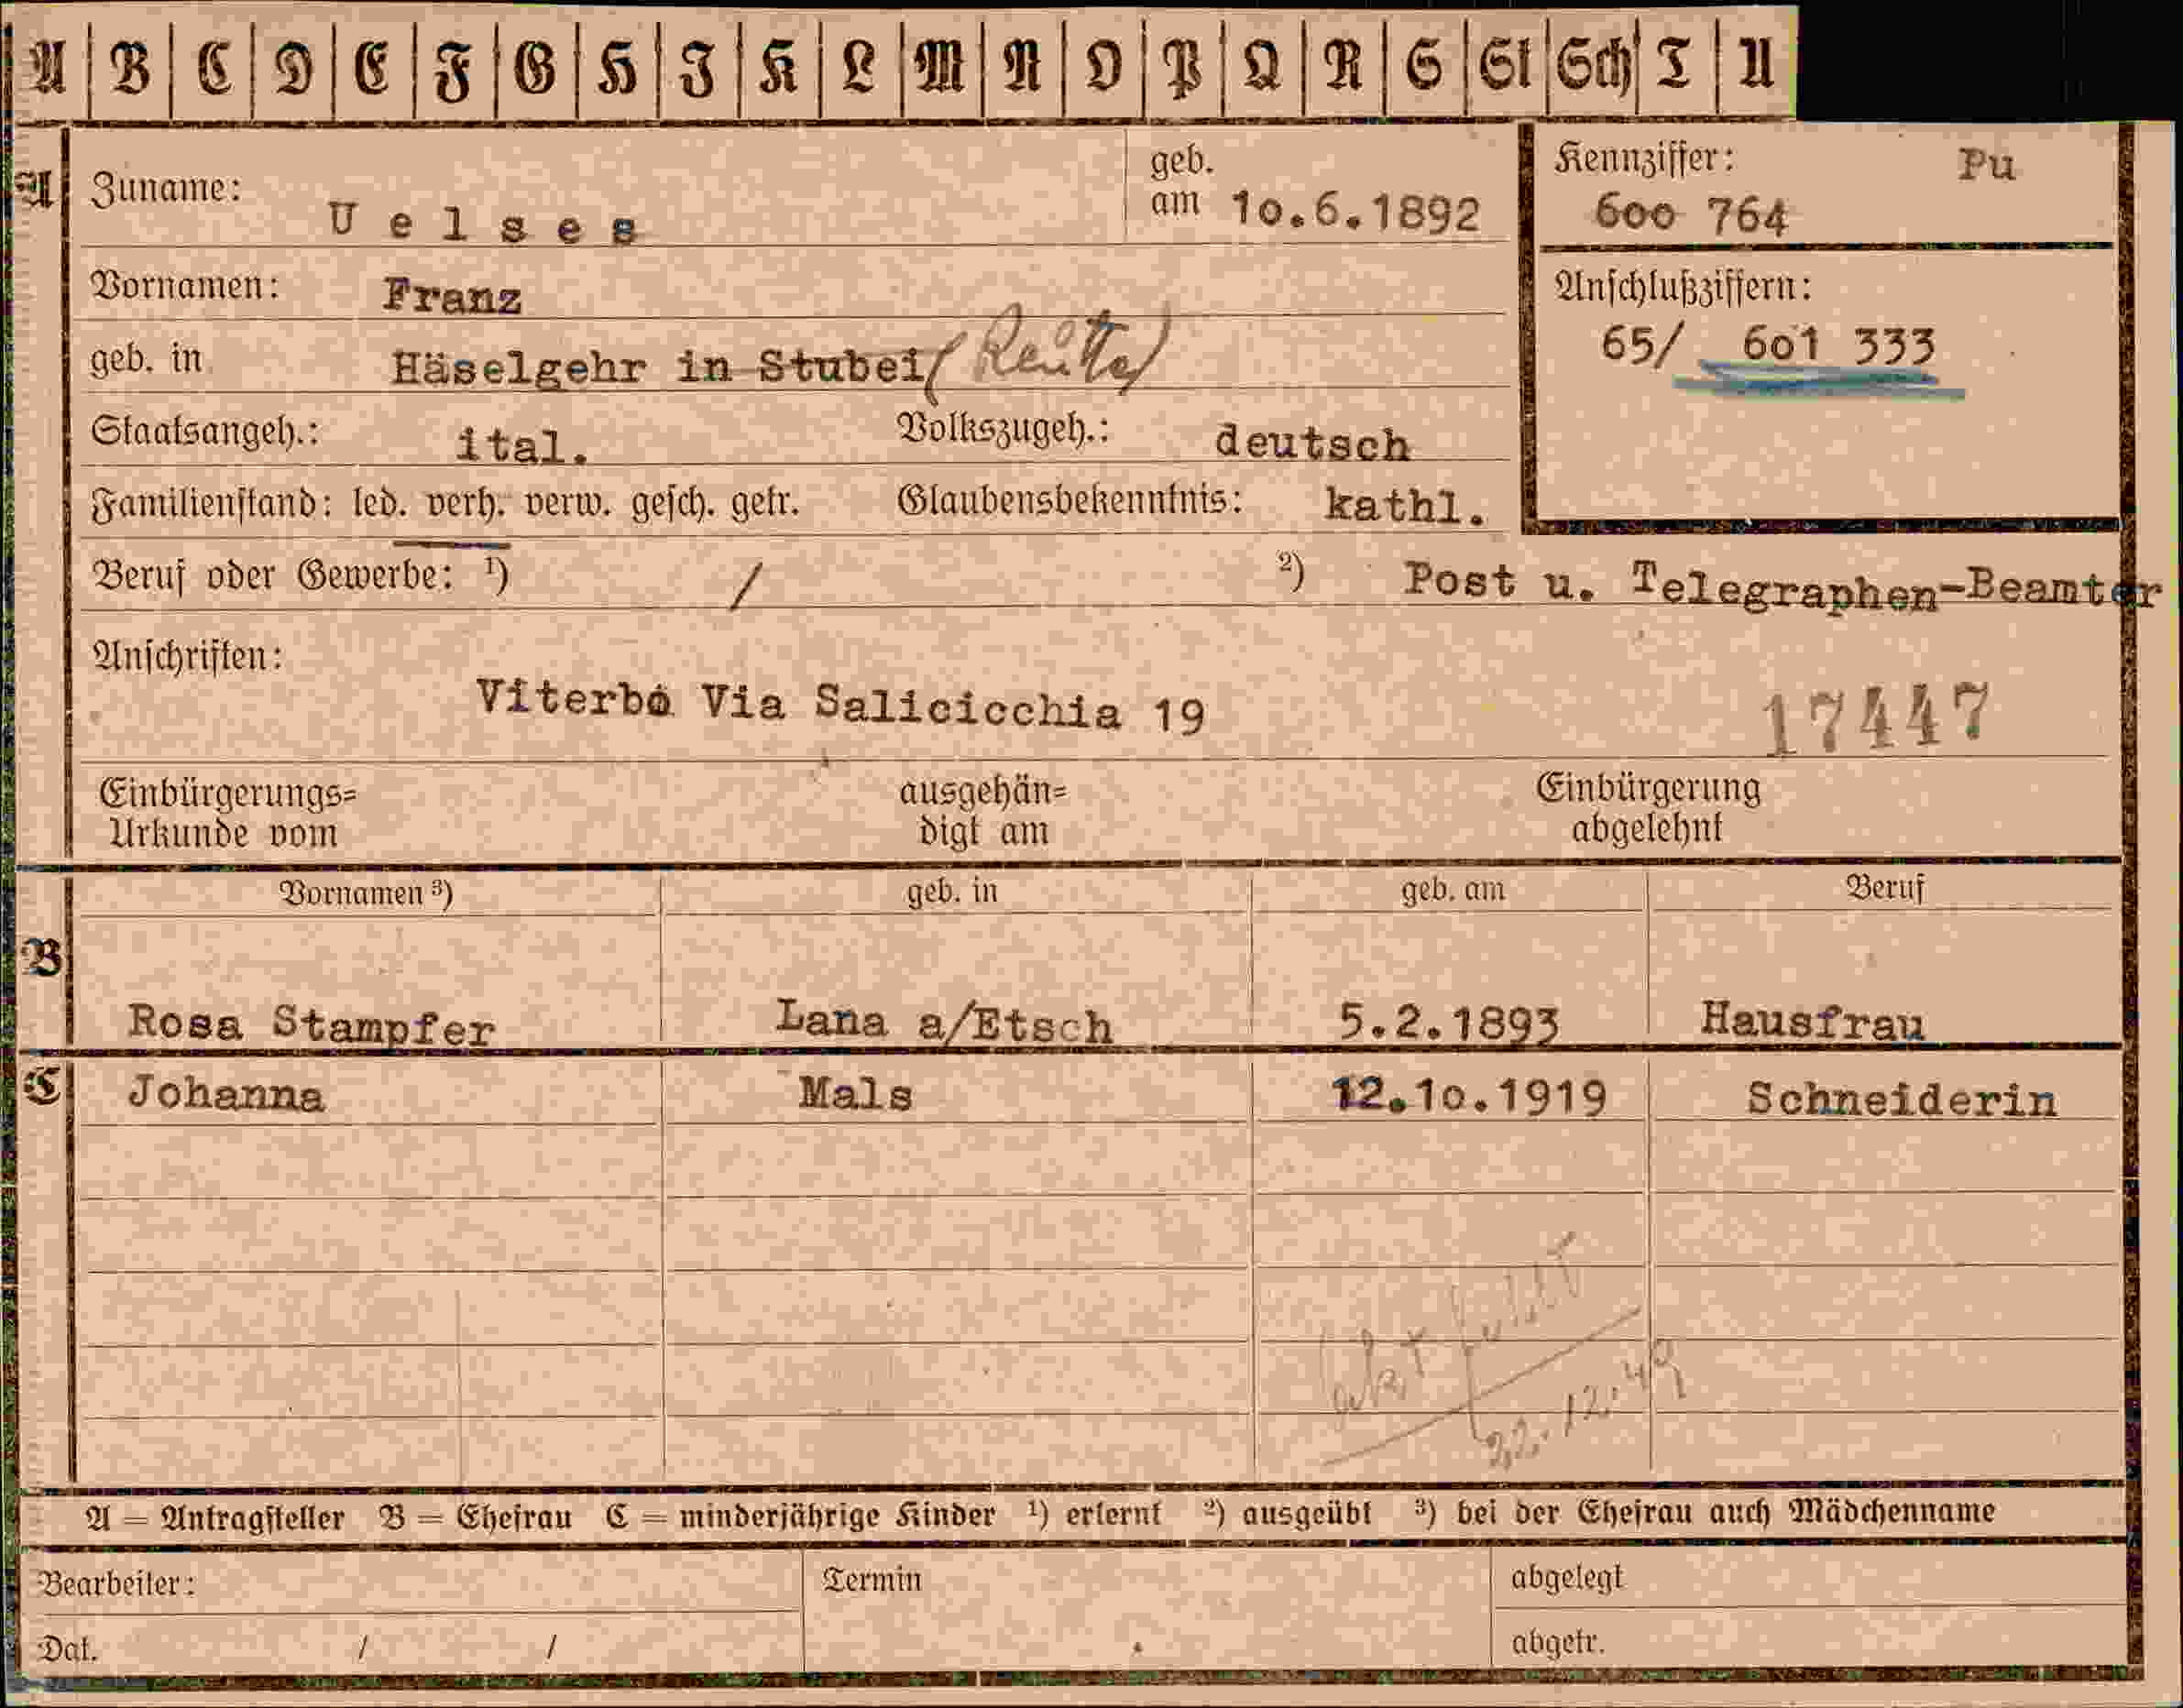 A B C D E F G H I K L M N O P Q R S St Sch T U
A
Zuname: Uelses
geb. am 10.6.1892
Kennziffer: Pu
600 764
Vornamen: Franz
Anschlußziffern:
65/ 601 333
geb. in Häselgehr in Stubei (Reutte)
Staatsangeh.: ital. Volkszugeh.: deutsch
Familienstand: led. verh. verw. gesch. getr. Glaubensbekenntnis: kathl.
Beruf oder Gewerbe: ¹) / ²) Post u. Telegraphen-Beamter
Anschriften:
Viterbo Via Salicicchia 19
17447
Einbürgerungs= Urkunde vom
ausgehän= digt am
Einbürgerung abgelehnt
Vornamen ³) geb. in geb. am Beruf
B
Rosa Stampfer Lana a/Etsch 5.2.1893 Hausfrau
C Johanna Mals 12.10.1919 Schneiderin
22.12.49
A = Antragsteller B = Ehefrau C = minderjährige Kinder ¹) erlernt ²) ausgeübt ³) bei der Ehefrau auch Mädchenname
Bearbeiter: Termin abgelegt
Dat. / / abgetr.